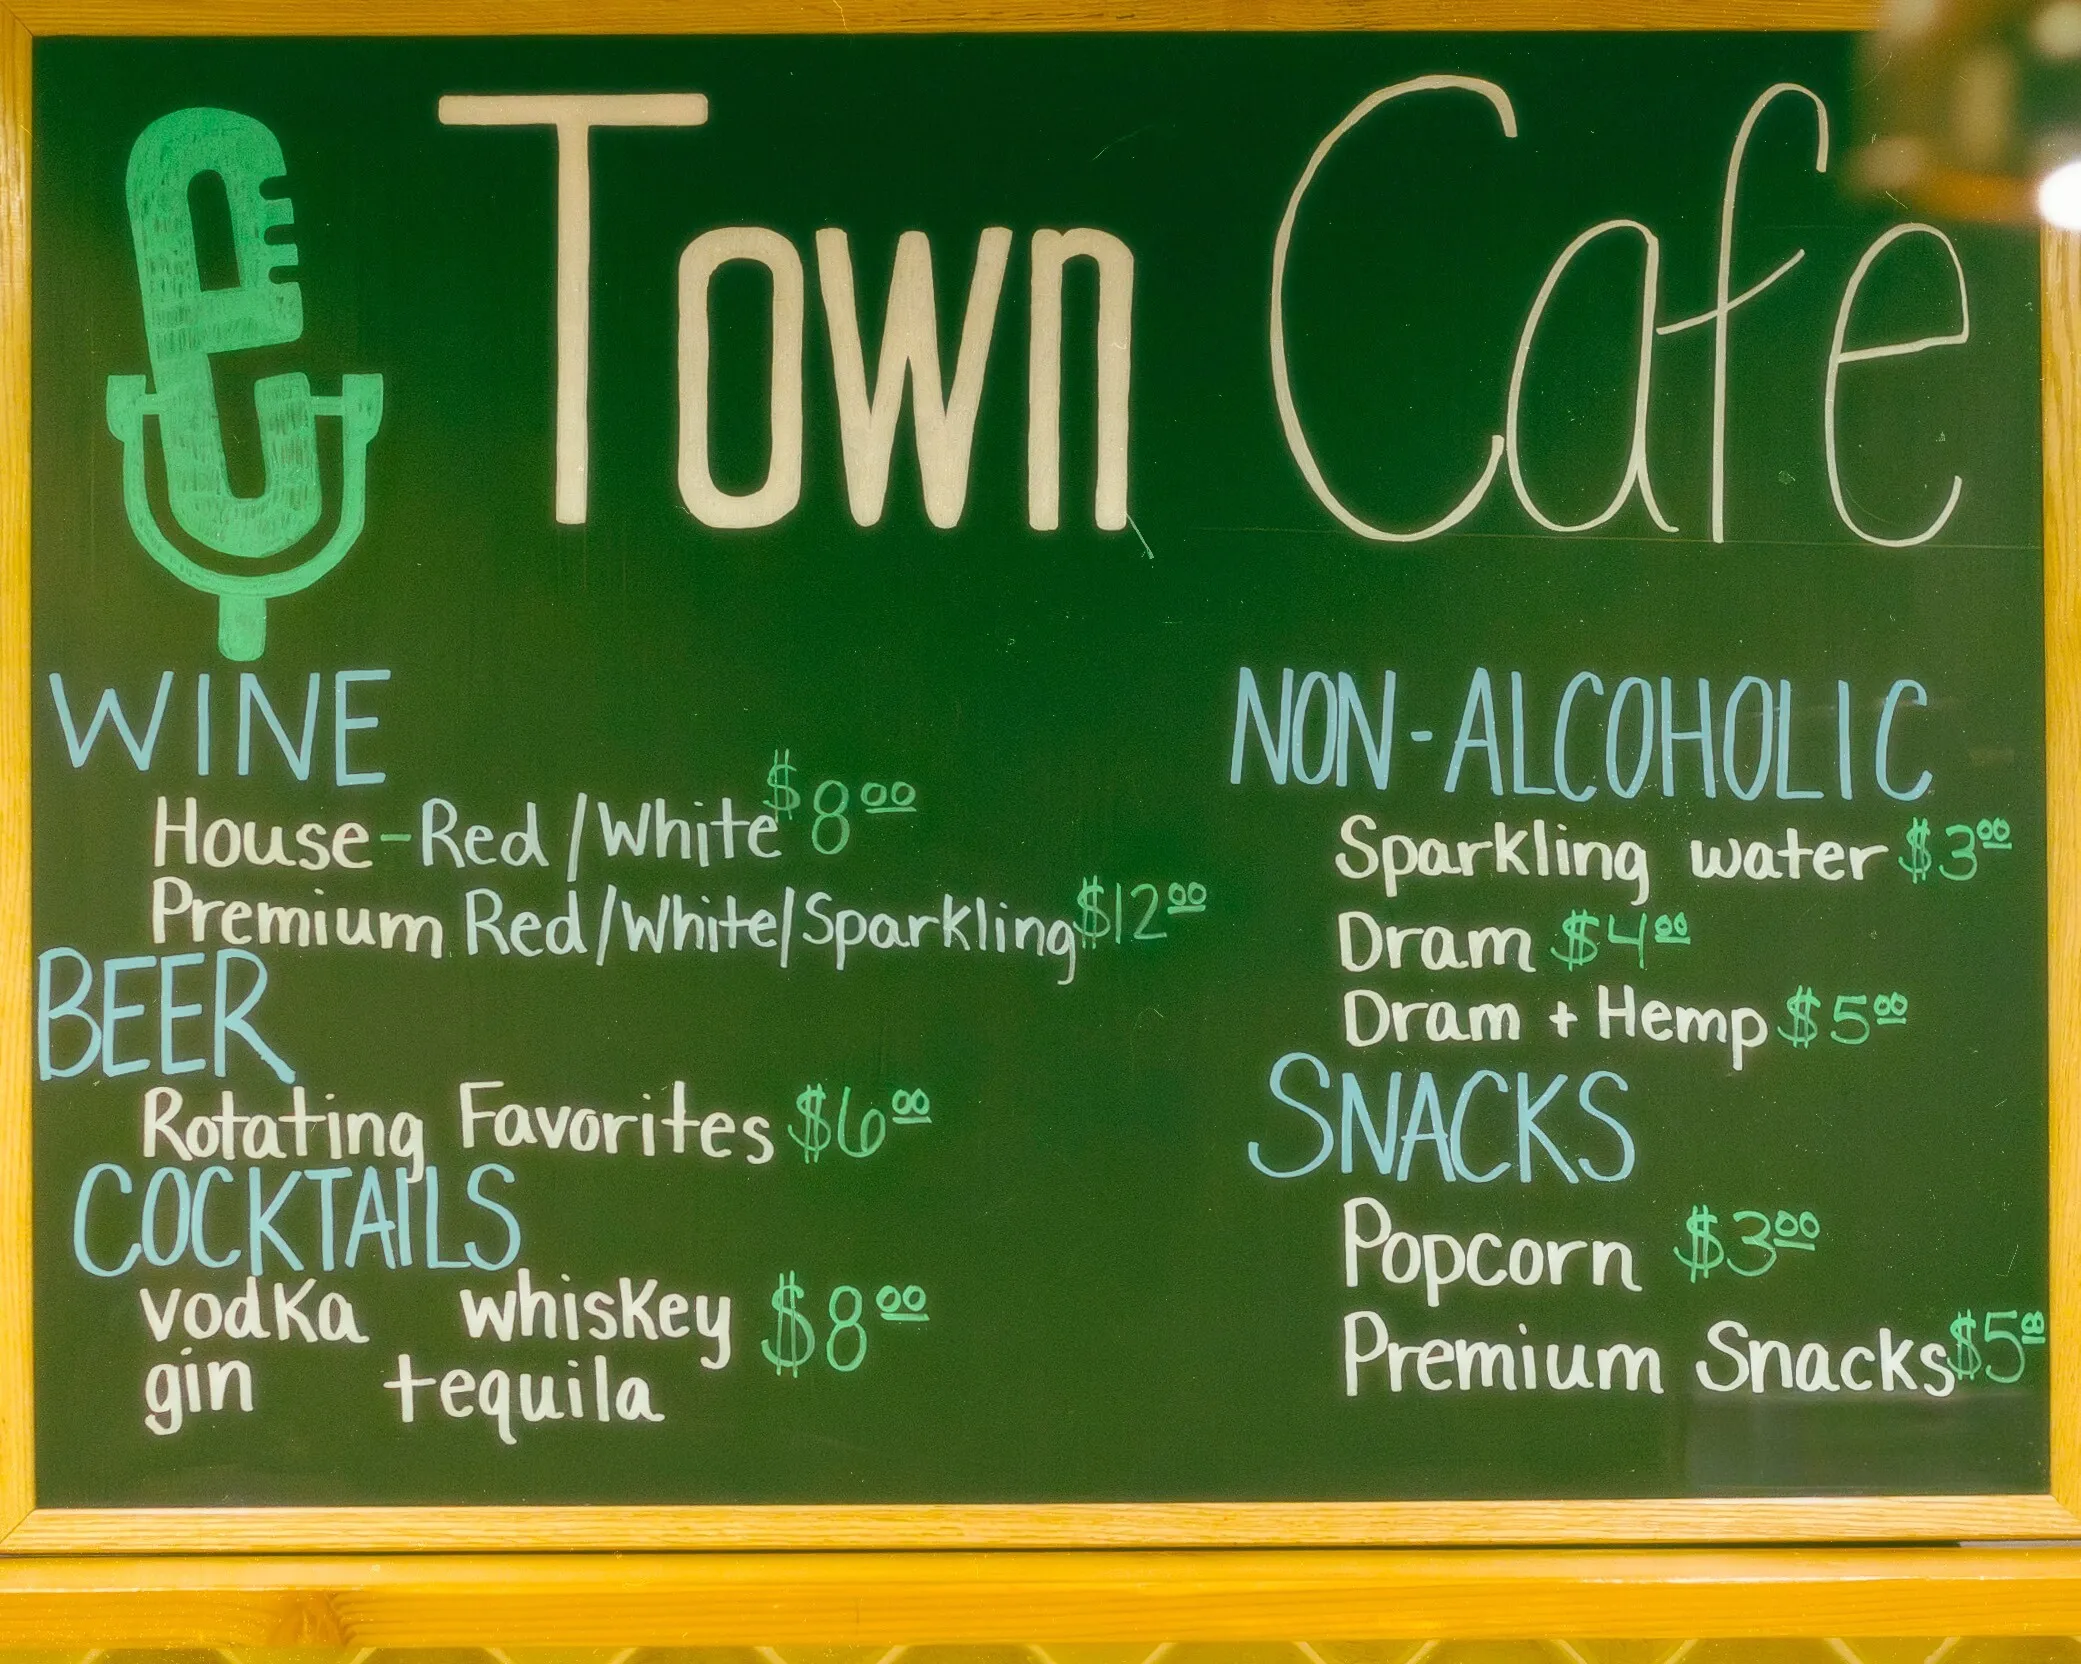 Town Cafe
WINE
House-Red/White $8.00
Premium Red/White/Sparkling $12.00
BEER
Rotating Favorites $6.00
COCKTAILS
vodka whiskey $8.00
gin tequila
NON-ALCOHOLIC
Sparkling water $3.00
Dram $4.00
Dram + Hemp $5.00
SNACKS
Popcorn $3.00
Premium Snacks $5.00